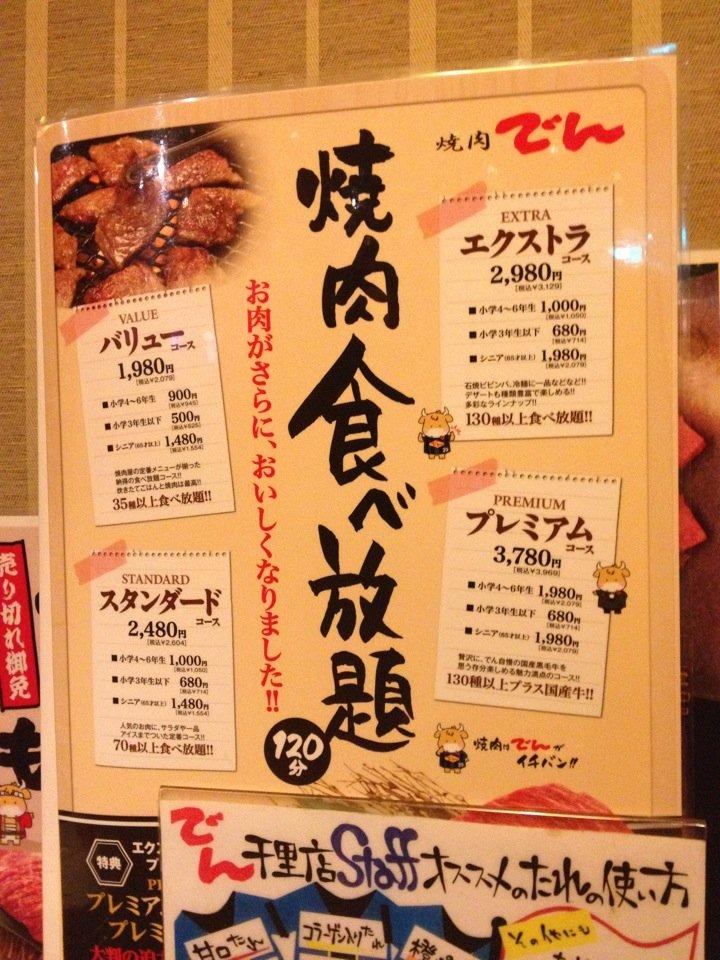 焼肉 でん
焼肉食べ放題
120分
お肉がさらに、おいしくなりました!!
VALUE
バリューコース
1,980円
[税込¥2,079]
■小学4〜6年生 900円
[税込¥945]
■小学3年生以下 500円
[税込¥525]
■シニア(65才以上) 1,480円
[税込¥1,554]
焼肉屋の定番メニューが揃った
納得の食べ放題コース!!
炊きたてごはんと焼肉は最高!!
35種以上食べ放題!!
STANDARD
スタンダードコース
2,480円
[税込¥2,604]
■小学4〜6年生 1,000円
[税込¥1,050]
■小学3年生以下 680円
[税込¥714]
■シニア(65才以上) 1,480円
[税込¥1,554]
人気のお肉に、サラダや一品
アイスまでついた定番コース!!
70種以上食べ放題!!
EXTRA
エクストラコース
2,980円
[税込¥3,129]
■小学4〜6年生 1,000円
[税込¥1,050]
■小学3年生以下 680円
[税込¥714]
■シニア(65才以上) 1,980円
[税込¥2,079]
石焼ビビンバ、冷麺に一品などなど!!
デザートも種類豊富で楽しめる!!
多彩なラインナップ!!
130種以上食べ放題!!
PREMIUM
プレミアムコース
3,780円
[税込¥3,969]
■小学4〜6年生 1,980円
[税込¥2,079]
■小学3年生以下 680円
[税込¥714]
■シニア(65才以上) 1,980円
[税込¥2,079]
贅沢に、でん自慢の国産黒毛牛を
思う存分楽しめる魅力満点のコース!!
130種以上プラス国産牛!!
焼肉はでんが
イチバン!!
売り切れ御免
特典
エクス
プレ
プレミア
プレミ
大判の迫
でん千里店Staffオススメのたれの使い方
甘口たれ
コラーゲン入りたれ
その他にも